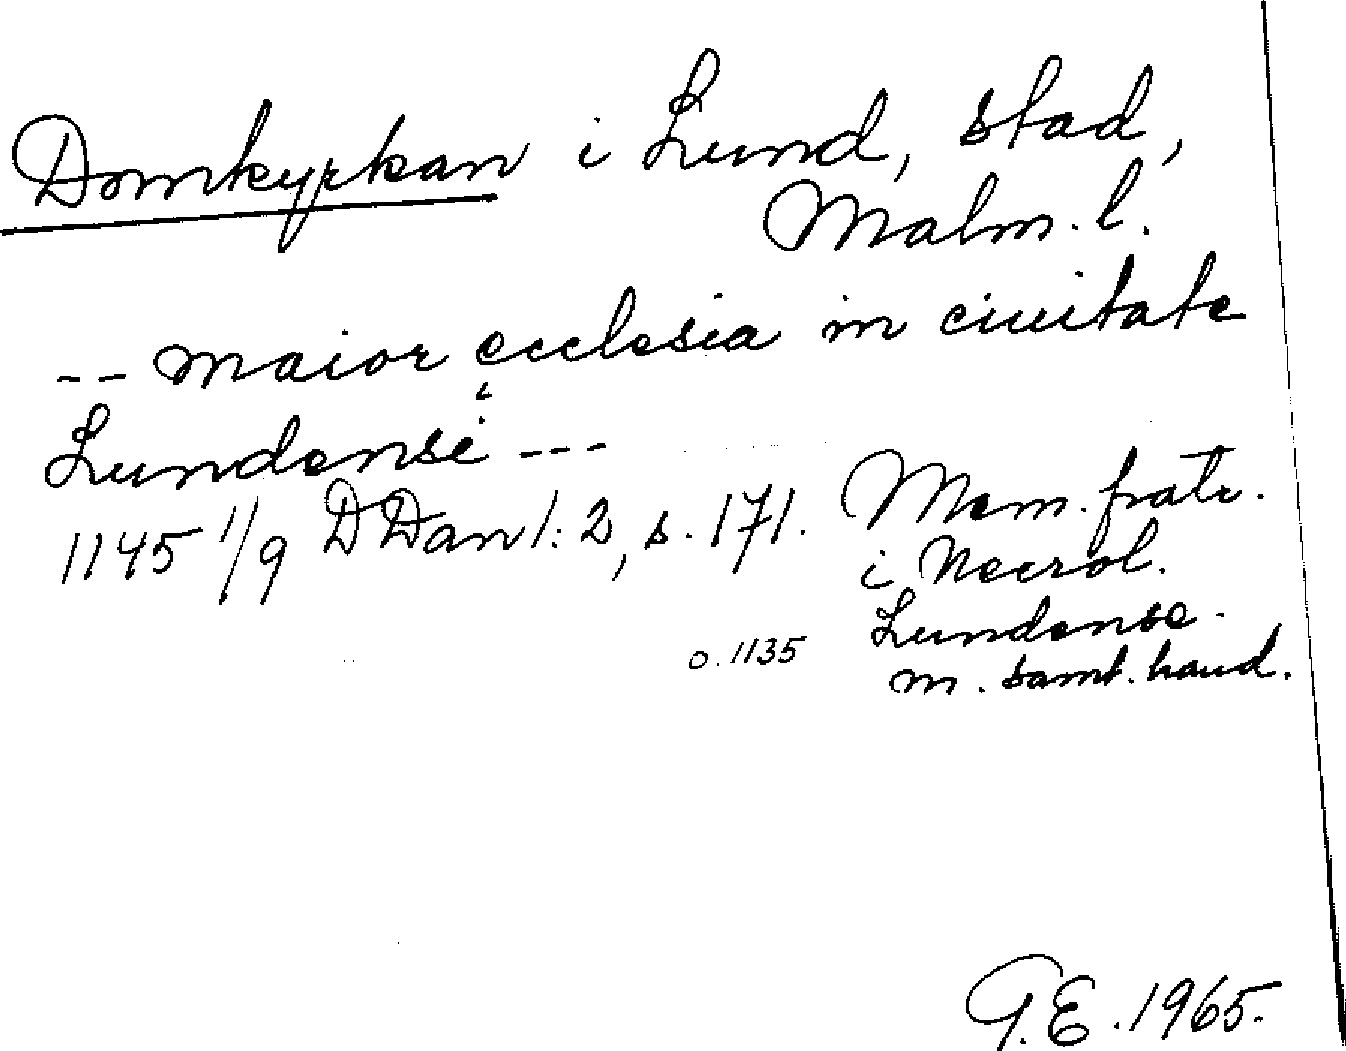 Domkyrkan i Lund, stad,
Malm. l.
-- maior ecclesia in ciuitate
Lundensi ---
1145 1/9 DDan 1:2, s. 171. Mem. fratr.
i Necrol.
o. 1135 Lundense.
m. samt. hand.
G.E. 1965.